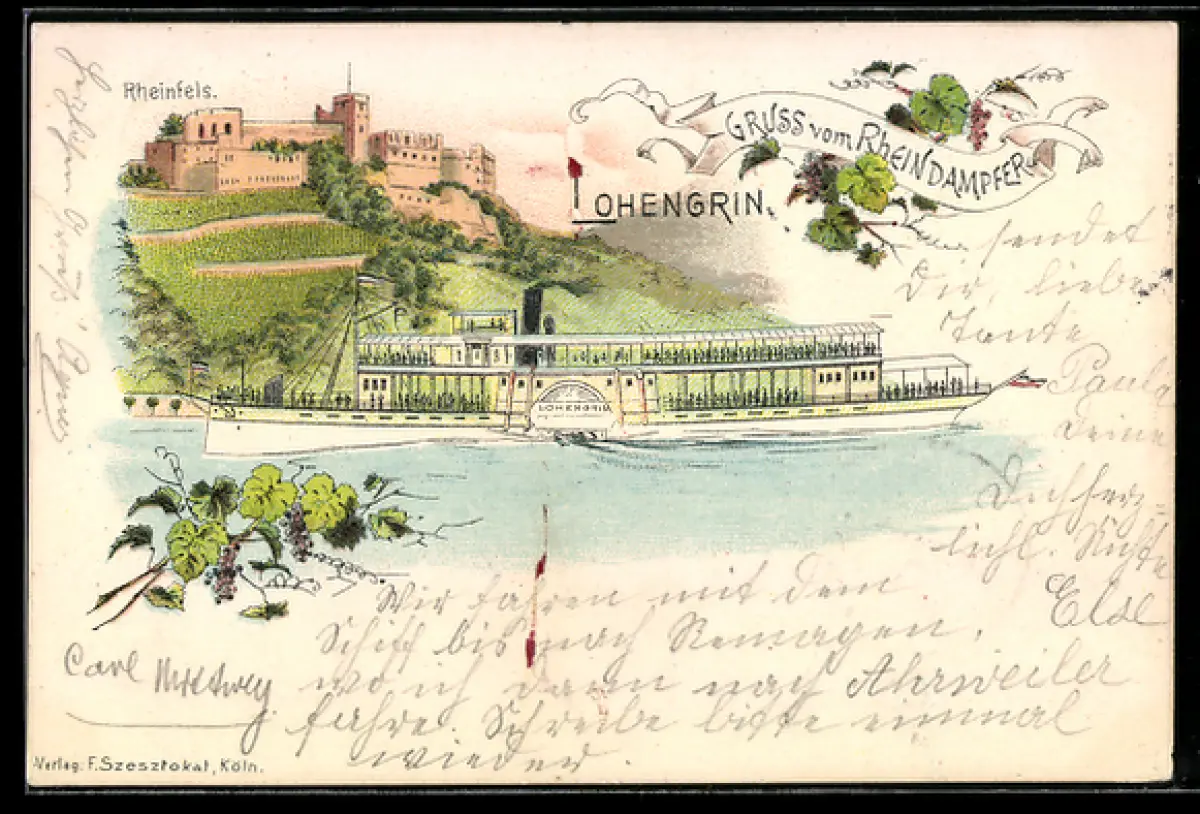 Rheinfels.
GRUSS vom RHEINDAMPFER
LOHENGRIN.
LOHENGRIN
sendet
Dir, liebe
Tante
Paula
Deine
Dich herz-
lichl. Nichte
Else
Wir fahren mit dem
Schiff bis nach Remagen,
wo ich dann nach Ahrweiler
fahre. Schreibe bitte einmal
wieder.
Carl
Verlag. F. Szesztokat, Köln.